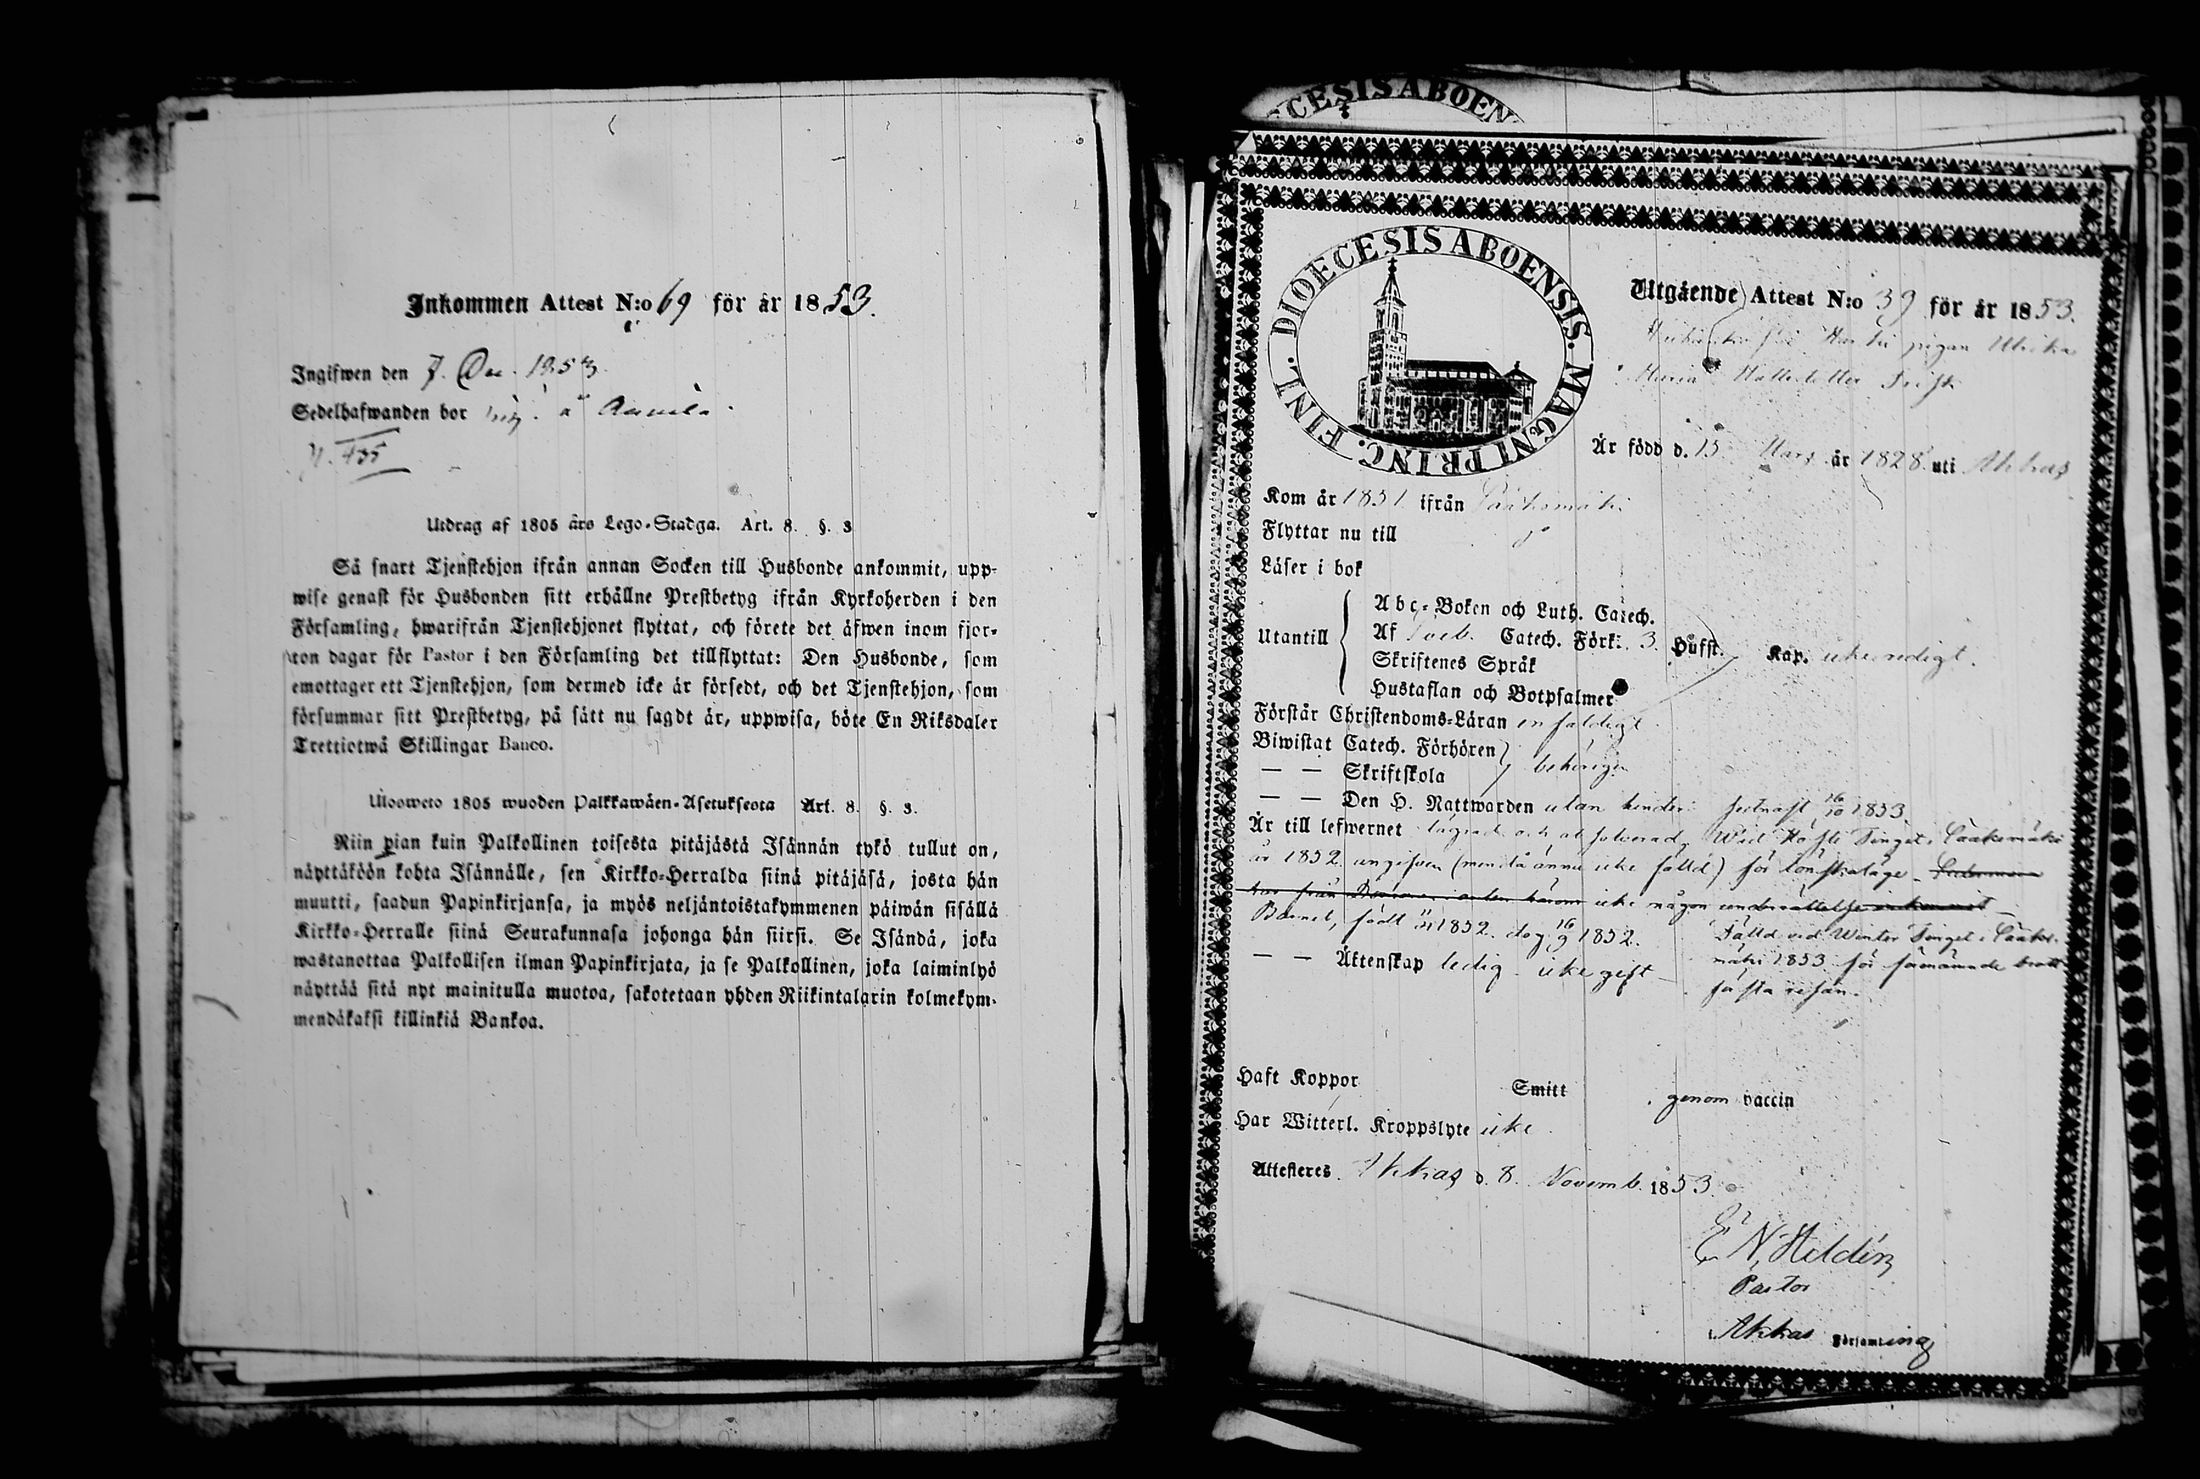 Inkommen Attest N:o 69 för år 1853.
Ingifwen den 7. Dec. 1853.
Sedelhafwanden bor
Utdrag af 1805 års Lego-Stadga. Art. 8. §. 3
Så snart Tjenstehjon ifrån annan Socken till Husbonde ankommit, upp-
wise genast för Husbonden sitt erhållne Prestbetyg ifrån Kyrkoherden i den
Församling, hwarifrån Tjenstehjonet flyttat, och förete det äfwen inom fjor-
ton dagar för Pastor i den Församling det tillflyttat: Den Husbonde, som
emottager ett Tjenstehjon, som dermed icke är försedt, och det Tjenstehjon, som
försummar sitt Prestbetyg, på sätt nu sagdt är, uppwisa, böte En Riksdaler
Trettiotwå Skillingar Banco.
Ulosweto 1805 wuoden Palkkawäen-Asetuksesta Art. 8. §. 3.
Niin pian kuin Palkollinen toisesta pitäjästä Isännän tykö tullut on,
näyttäköön kohta Isännälle, sen Kirkko-Herralda siinä pitäjäsä, josta hän
muutti, saadun Papinkirjansa, ja myös neljäntoistakymmenen päiwän sisällä
Kirkko-Herralle siinä Seurakunnasa johonga hän siirsi. Se Isändä, joka
wastanottaa Palkollisen ilman Papinkirjata, ja se Palkollinen, joka laiminlyö
näyttää sitä nyt mainitulla muotoa, sakotetaan yhden Riikintalarin kolmekym-
mendäkaksi killinkiä Bankoa.
DIOECESIS ABOEN
DIOECESIS ABOENSIS. MAGNI PRINC. FINL.
Utgående Attest N:o 39 för år 1853.
pigan Ulrika
Maria
Är född d. 15 Mars år 1828 uti Akkas
Kom år 1851 ifrån Sääksmäki
Flyttar nu till
Läser i bok
Utantill
Abc-Boken och Luth. Catech.
Af Sveb. Catech. Förkl. 3. Hufst. Kap. icke redigt.
Skriftenes Språk
Hustaflan och Botpsalmer
Förstår Christendoms-Läran enfaldigt
Biwistat Catech. Förhören
— — Skriftskola behörigen
— — Den H. Nattwarden utan hinder sednast 16/10 1853.
Är till lefwernet lagförd och absolverad, Wid Höste Tinget i Sääksmäki
år 1852 angifven (men då ännu icke fälld) för lönskaläge
icke någon
Barnet, född 1852. dog 16/9 1852. Fälld vid Winter Tinget i Sääks-
mäki 1853 för förenämnde brott
första resan.
— — Äktenskap ledig - icke gift
Haft Koppor Smitt genom vaccin
Har Witterl. Kroppslyte icke
Attesteres. Akkas d. 8. Novemb. 1853.
E N Heldén
Pastor
i Akkas Församling